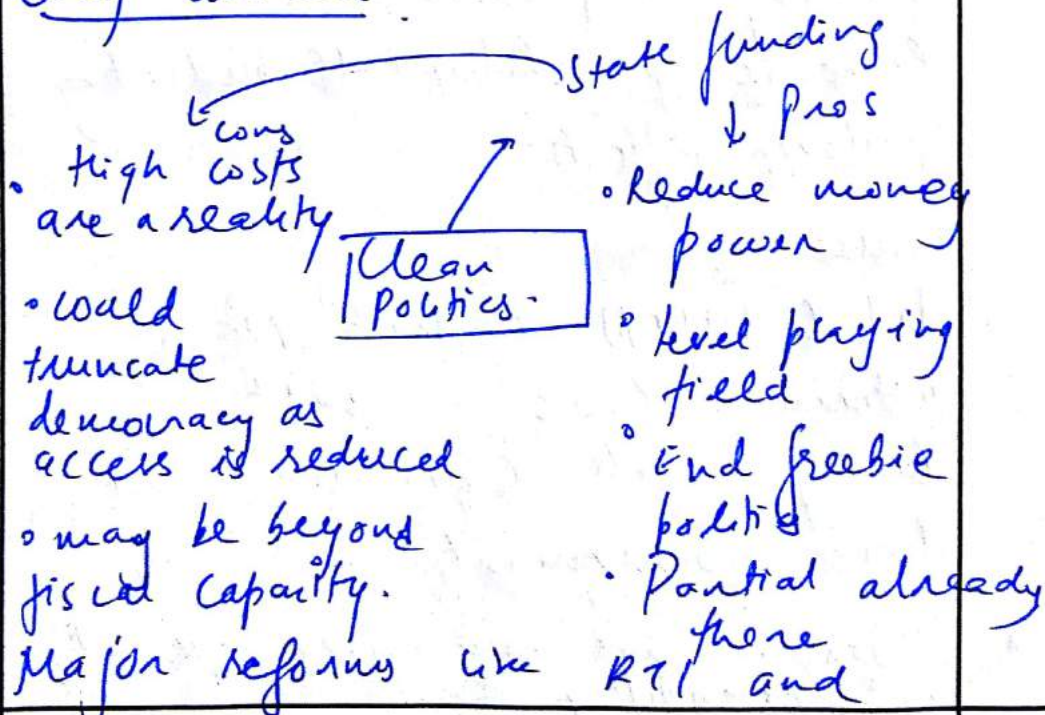 State funding
cons
• High costs
are a reality
• could
truncate
democracy as
access is reduced
• may be beyond
fiscal capacity.
Clean
Politics.
↓ Pros
• Reduce money
power
• level playing
field
• End freebie
politics
• Partial already
there
Major reforms like RTI and